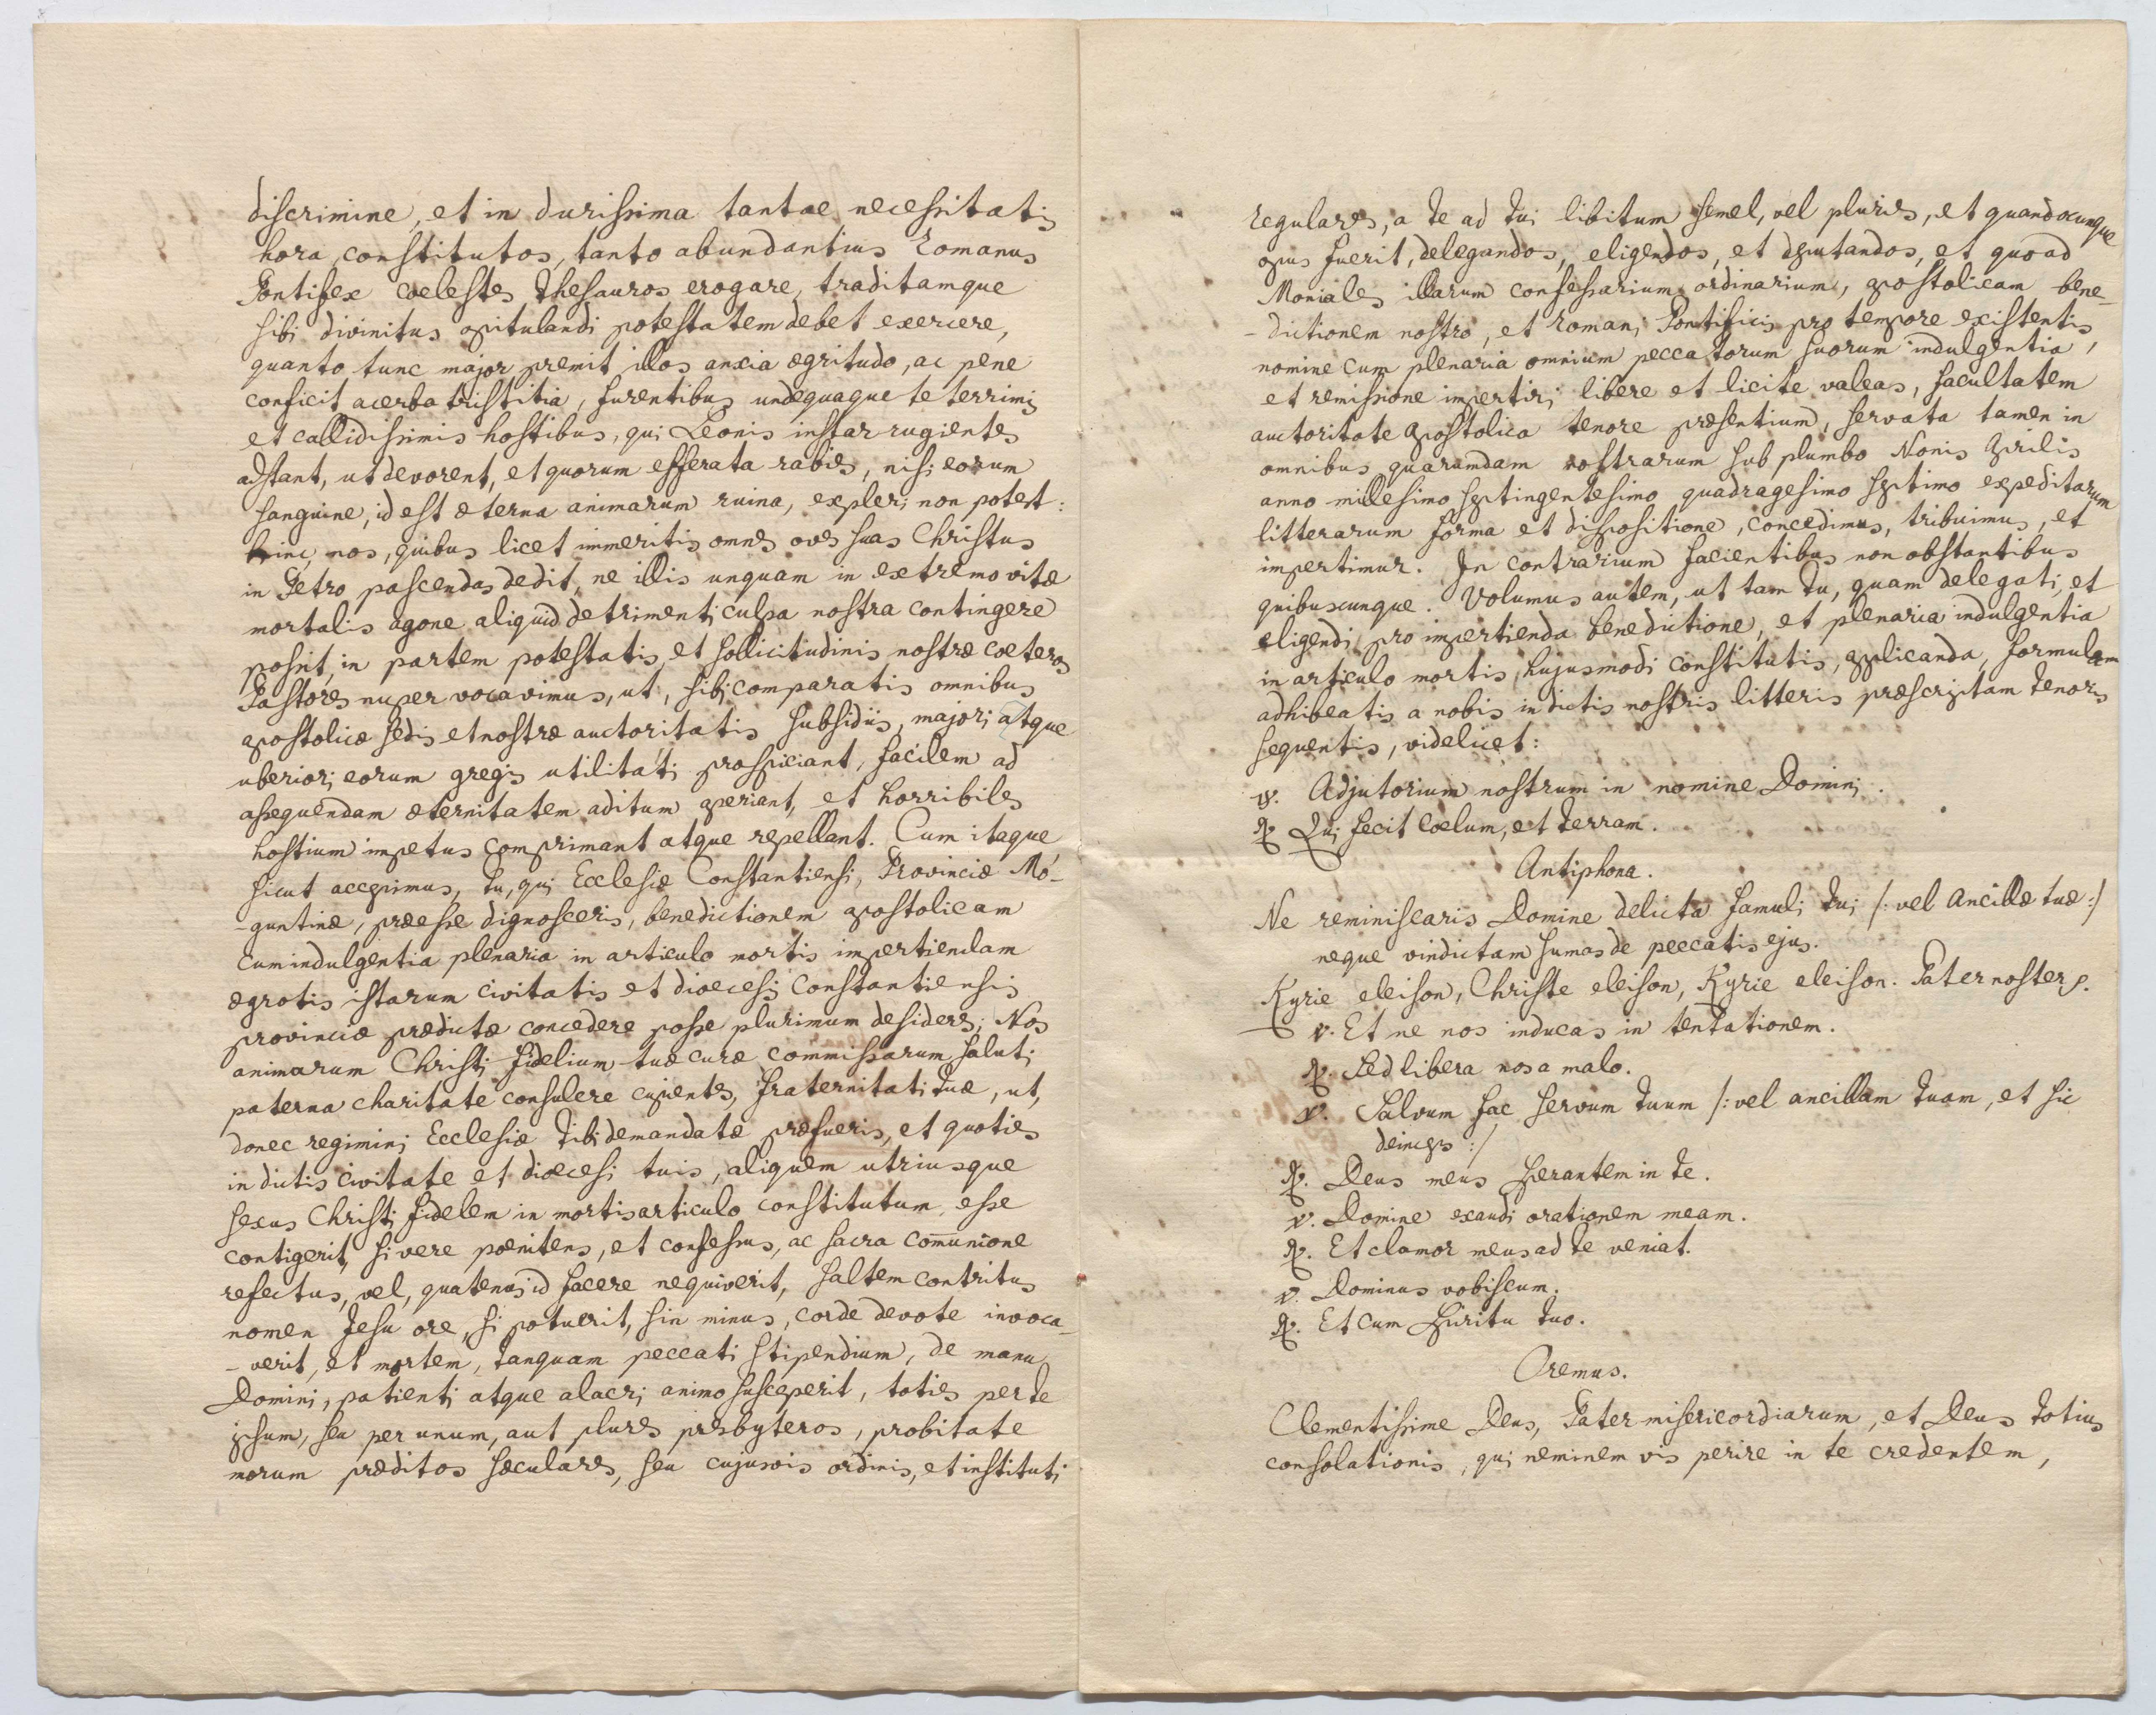 discrimine, et in durissima tantae necessitatis
hora constitutos, tanto abundantius Romanus
Pontifex coelestes thesauros erogare, traditamque
sibi divinitus opitulandi potestatem debet exercere,
quanto tunc major premit illos anxia ægritudo, ac pene
conficit acerba tristitia, furentibus undequaque teterrimis
et callidissimis hostibus, qui Leonis instar rugientes
adstant, ut devorent, et quorum efferata rabies, nisi eorum
sanguine, id est æterna animarum ruina, expleri non potest:
hinc nos, quibus licet immeritis omnes oves suas Christus
in Petro pascendas dedit, ne illis unquam in extremo vitæ
mortalis agone aliquid detrimenti culpa nostra contingere
possit, in partem potestatis et sollicitudinis nostræ coeteros
Pastores nuper vocavimus, ut, sibi comparatis omnibus
apostolicæ sedis et nostræ auctoritatis subsidiis, majori atque
uberiori eorum gregis utilitati prospiciant, facilem ad
assequendam æternitatem aditum aperiant, et horribiles
hostium impetus comprimant atque repellant. Cum itaque
sicut accepimus, tu, qui Ecclesiæ Constantiensi, Provinciæ Mo-
-guntinæ, præesse dignosceris, benedictionem apostolicam
cum indulgentia plenaria in articulo mortis impertiendam
ægrotis istarum civitatis et dioecesis Constantiensis
provinciæ prædictæ concedere posse plurimum desideres; Nos
animarum Christi fidelium tuæ curæ commissarum saluti
paterna charitate consulere cupientes, fraternitati tuæ, ut,
donec regimini Ecclesiæ tibi demandatæ præfueris, et quoties
in dictis civitate et dioecesi tuis, aliquem utriusque
sexus Christi fidelem in mortis articulo constitutum esse
contigerit, si vere poenitens, et confessus, ac sacra com̅unione
refectus, vel, quatenus id facere nequiverit, saltem contritus
nomen Jesu ore, si potuerit, sin minus, corde devote invoca-
-verit, et mortem, tanquam peccati stipendium, de manu
Domini, patienti atque alacri animo susceperit, toties per te
ipsum, seu per unum, aut plures presbyteros, probitate
morum præditos sæculares, seu cujusvis ordinis, et instituti
regulares, a te ad tui libitum semel, vel pluries, et quandocunque
opus fuerit, delegandos, eligendos, et deputandos, et quoad
Moniales illarum confessarium ordinarium, apostolicam bene-
-dictionem nostro, et Romani Pontificis pro tempore existentis
nomine cum plenaria omnium peccatorum suorum indulgentia,
et remissione impertiri libere et licite valeas, facultatem
auctoritate apostolica tenore præsentium, servata tamen in
omnibus quarumdam nostrarum sub plumbo Nonis Aprilis
anno millesimo septingentesimo quadragesimo septimo expeditarum
litterarum forma et dispositione, concedimus, tribuimus, et
impertimur. In contrarium facientibus non obstantibus
quibuscunque. Volumus autem, ut tam tu, quam delegati, et
eligendi pro impertienda benedictione, et plenaria indulgentia
in articulo mortis hujusmodi constitutis, applicanda, formulam
adhibeatis a nobis in dictis nostris litteris præscriptam tenoris
sequentis, videlicet:
℣. Adjutorium nostrum in nomine Domini.
℟ Qui fecit coelum, et terram.
Antiphona.
Ne reminiscaris Domine delicta famuli tui /: vel Ancillæ tuæ :/
neque vindictam sumas de peccatis ejus.
Kyrie eleison, Christe eleison, Kyrie eleison. Pater noster
℣. Et ne nos inducas in tentationem.
℟. Sed libera nos a malo.
℣. Salvum fac servum tuum /: vel ancillam tuam, et sic
deinceps :/
℟. Deus meus sperantem in te.
℣. Domine exaudi orationem meam.
℟. Et clamor meus ad te veniat.
℣. Dominus vobiscum.
℟. Et cum spiritu tuo.
Oremus.
Clementissime Deus, Pater misericordiarum, et Deus totius
consolationis, qui neminem vis perire in te credentem,